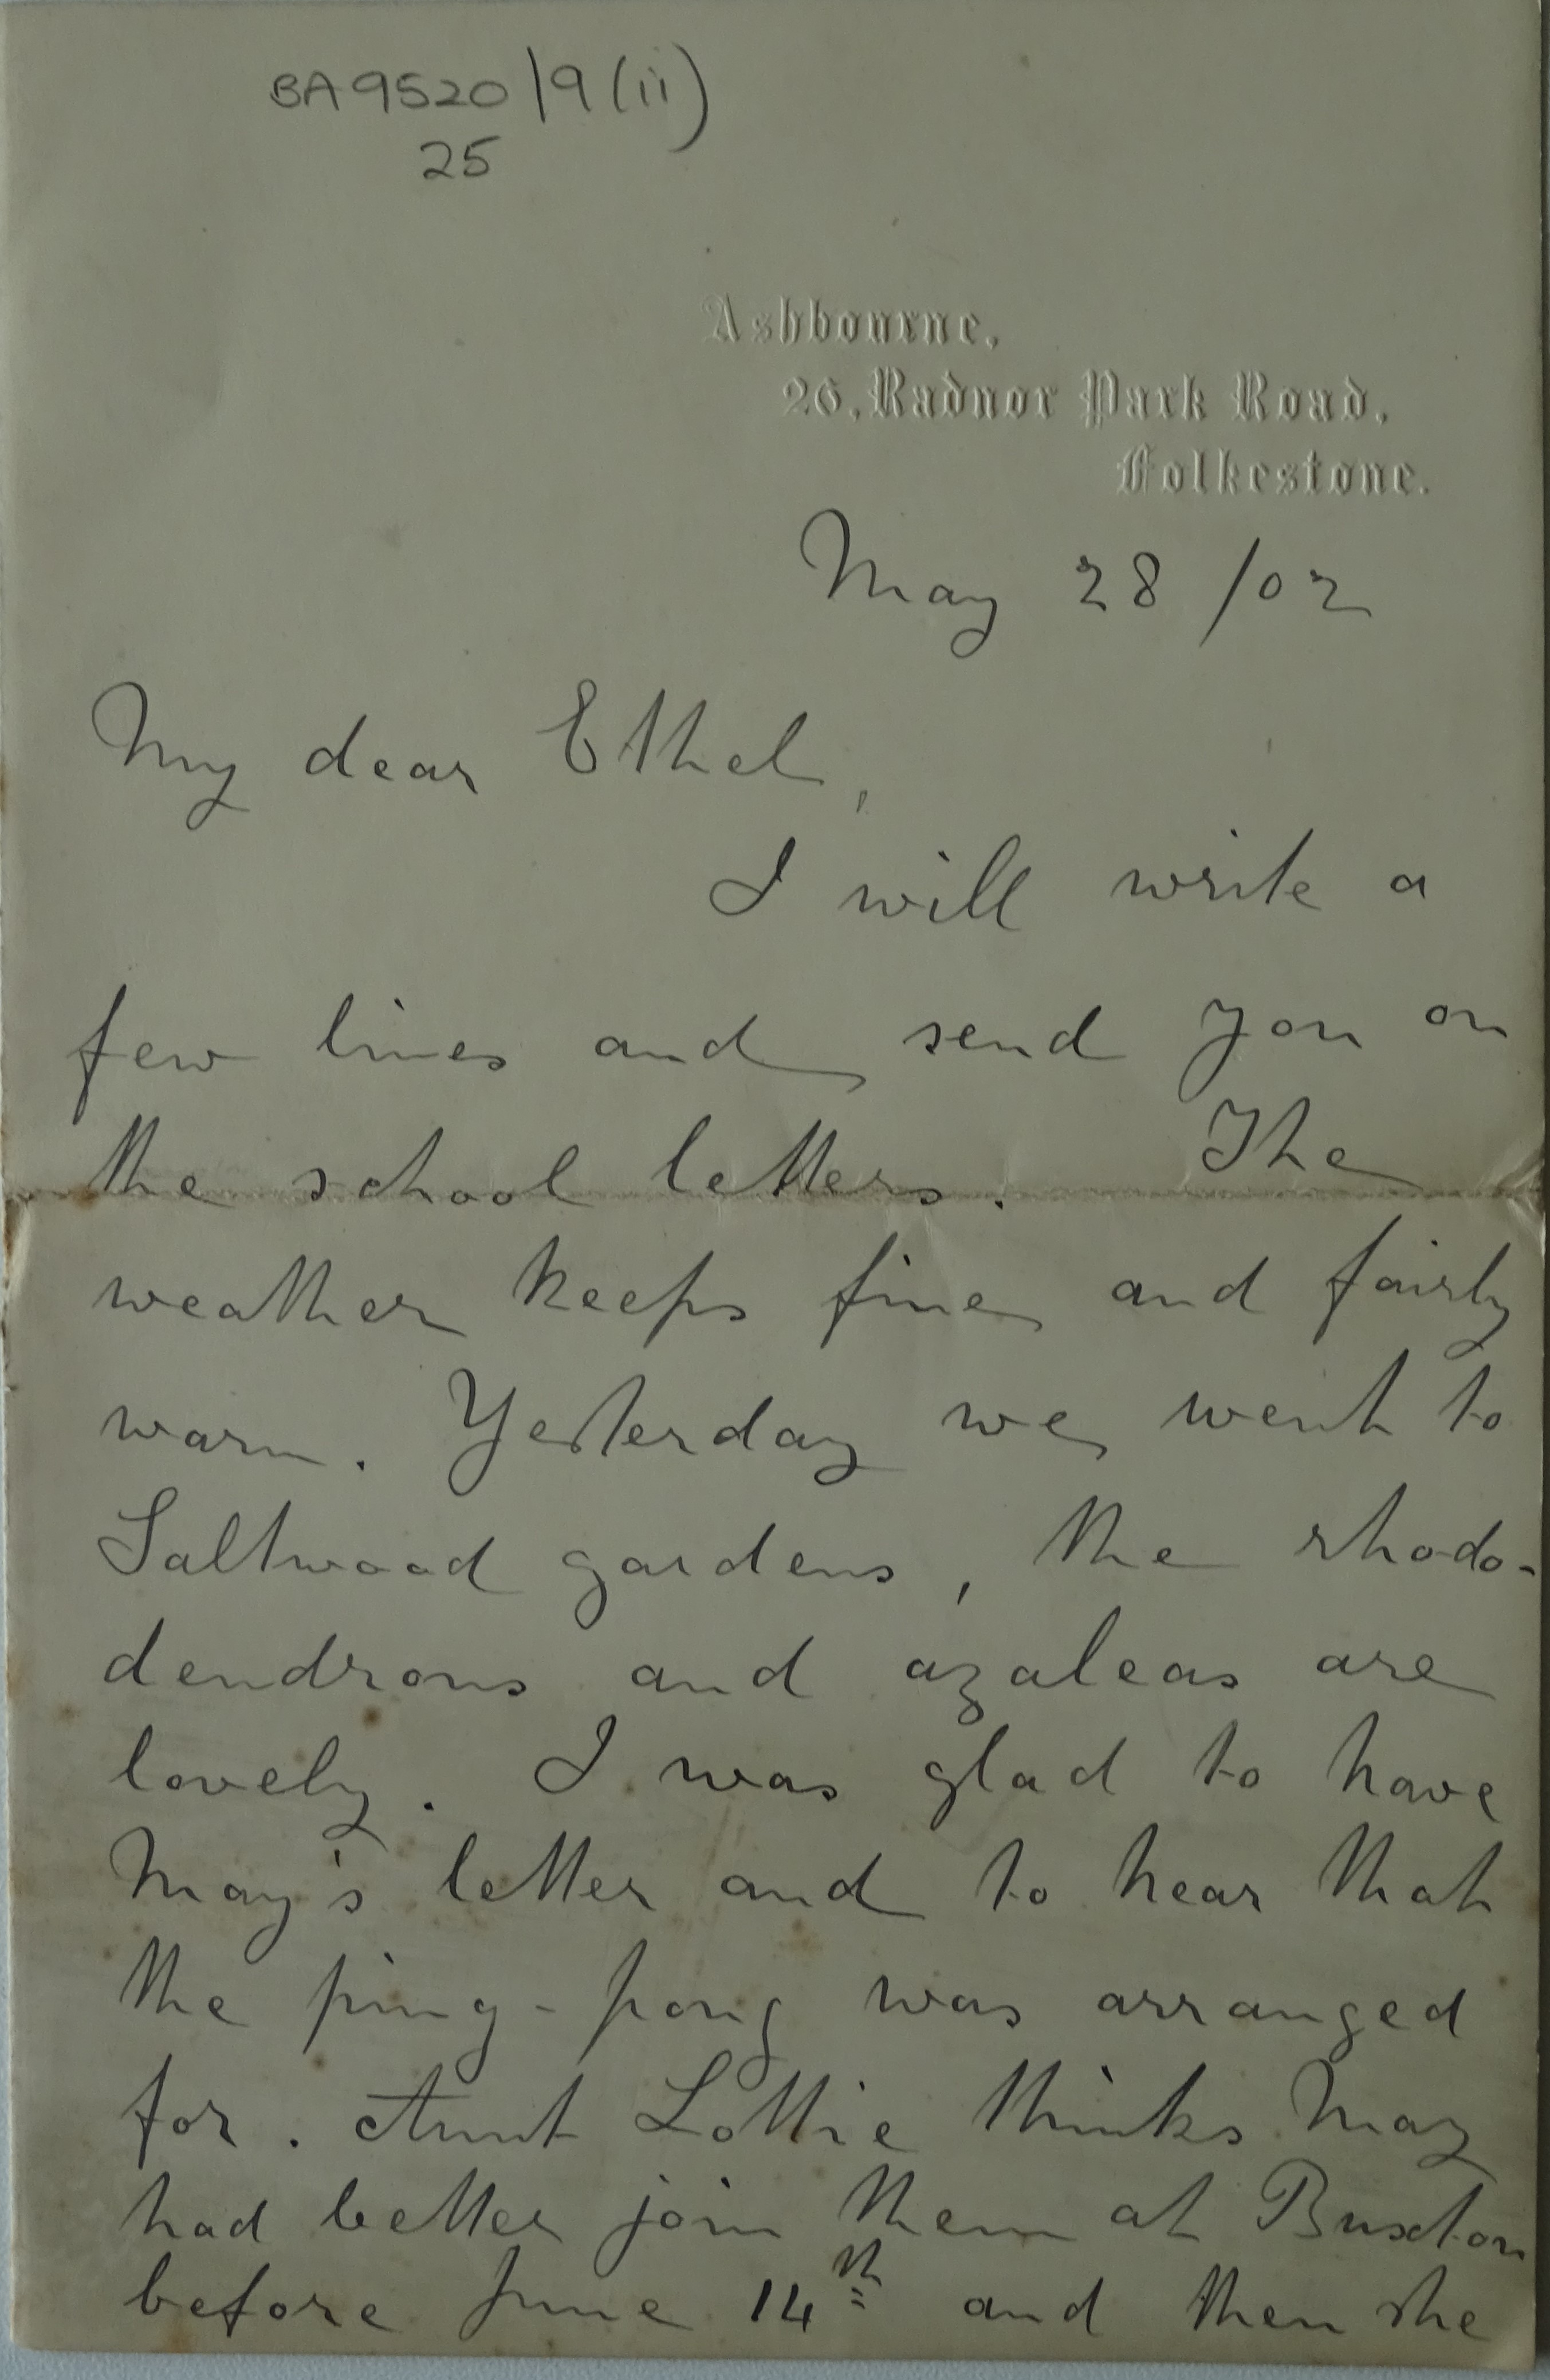 BA9520/9(ii)
25
Ashbourne,
26, Radnor Park Road,
Folkestone.
May 28 /02
My dear Ethel,
I will write a
few lines and send you on
the school letters. The
weather keeps fine and fairly
warm. Yesterday we went to
Saltwood gardens, the rhodo-
dendrons and azaleas are
lovely. I was glad to have
May's letter and to hear that
the ping-pong was arranged
for. Aunt Lottie thinks May
had better join them at Buxton
before June 14th and then she